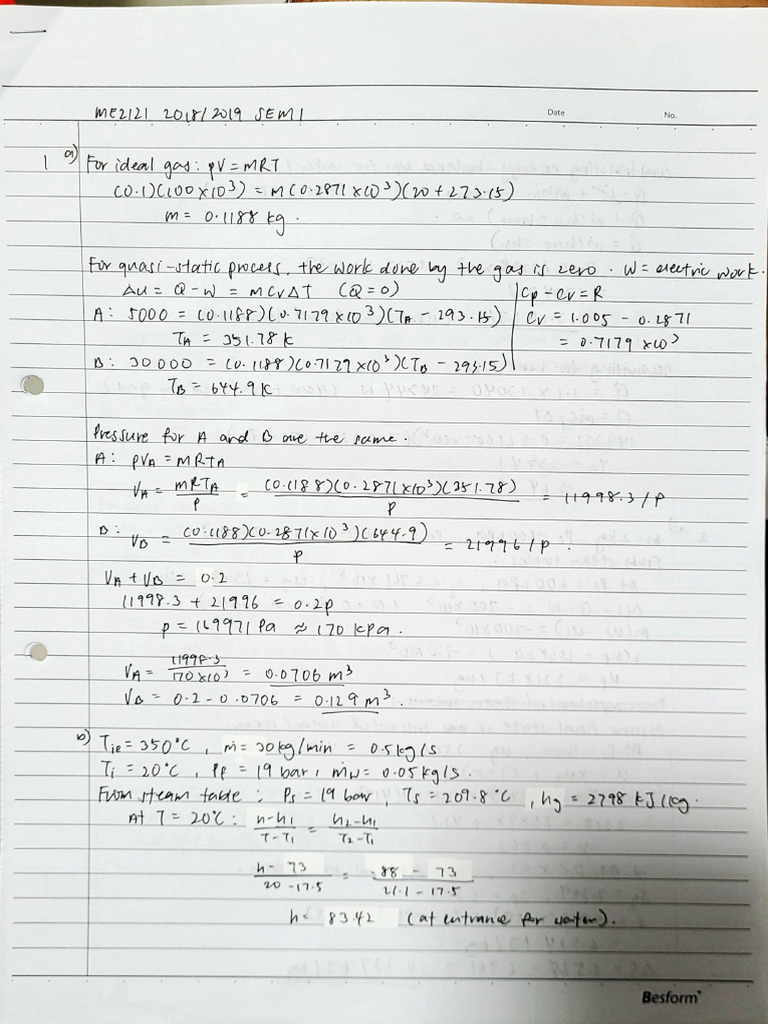 ME2121 2018/2019 SEM 1
Date
No.
1 a) For ideal gas: pV = MRT
(0.1)(100 x10³) = m(0.2871 x10³)(20 + 273.15)
m = 0.1188 kg.
For quasi-static process, the work done by the gas is zero. W = electric work.
Δu = Q - W = mCvΔT (Q = 0)
Cp - Cv = R
A: 5000 = (0.1188)(0.7179 x10³)(TA - 293.15)
Cv = 1.005 - 0.2871
TA = 351.78 K
= 0.7179 x10³
B: 30000 = (0.1188)(0.7179 x10³)(TB - 293.15)
TB = 644.9 K
Pressure for A and B are the same.
A: pVA = MRTA
VA = MRTA / P = (0.1188)(0.2871 x10³)(351.78) / P = 11998.3 / P
B: VB = (0.1188)(0.2871 x10³)(644.9) / P = 21996 / P.
VA + VB = 0.2
11998.3 + 21996 = 0.2p
p = 169971 Pa ≈ 170 kPa.
VA = 11998.3 / 170 x10³ = 0.0706 m³
VB = 0.2 - 0.0706 = 0.129 m³.
b) Tie = 350°C, ṁ = 30 kg/min = 0.5 kg/s
Ti = 20°C, Pf = 19 bar, ṁw = 0.05 kg/s.
From steam table: Ps = 19 bar, Ts = 209.8°C, hg = 2798 kJ/kg.
At T = 20°C: h-h1 / T-T1 = h2-h1 / T2-T1
h - 73 / 20 - 17.5 = 88 - 73 / 21.1 - 17.5
h = 83.42 (at entrance for water).
Besform